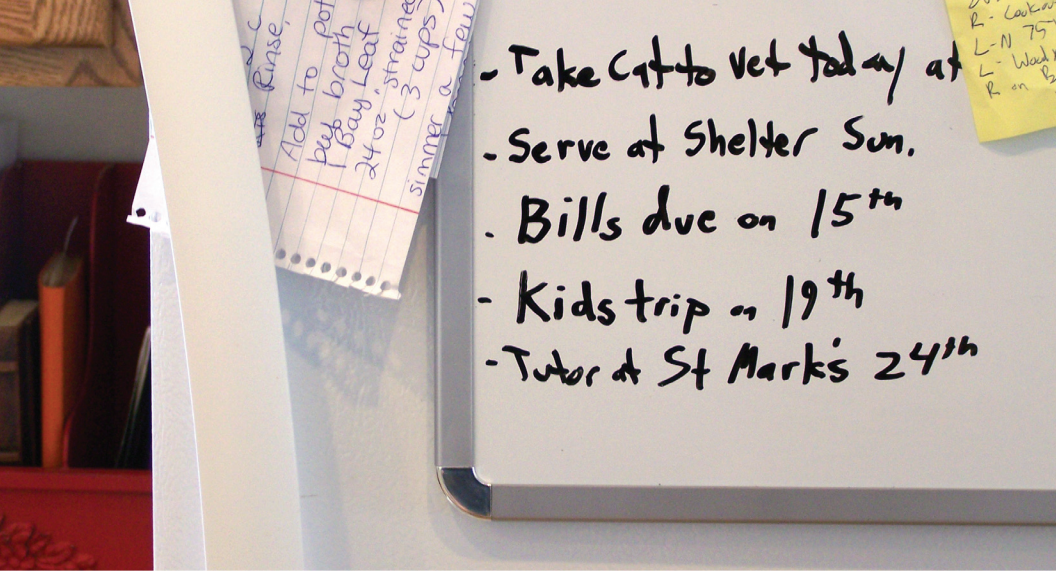 2 c
Rinse,
Add to pot
broth
1 Bay Leaf
24oz. strained
(3 cups)
simmer a few
- Take Cat to vet today at
- Serve at Shelter Sun.
- Bills due on 15th
- Kids trip on 19th
- Tutor at St Mark's 24th
R - Lookout
L-N 75
L- Woods
R on